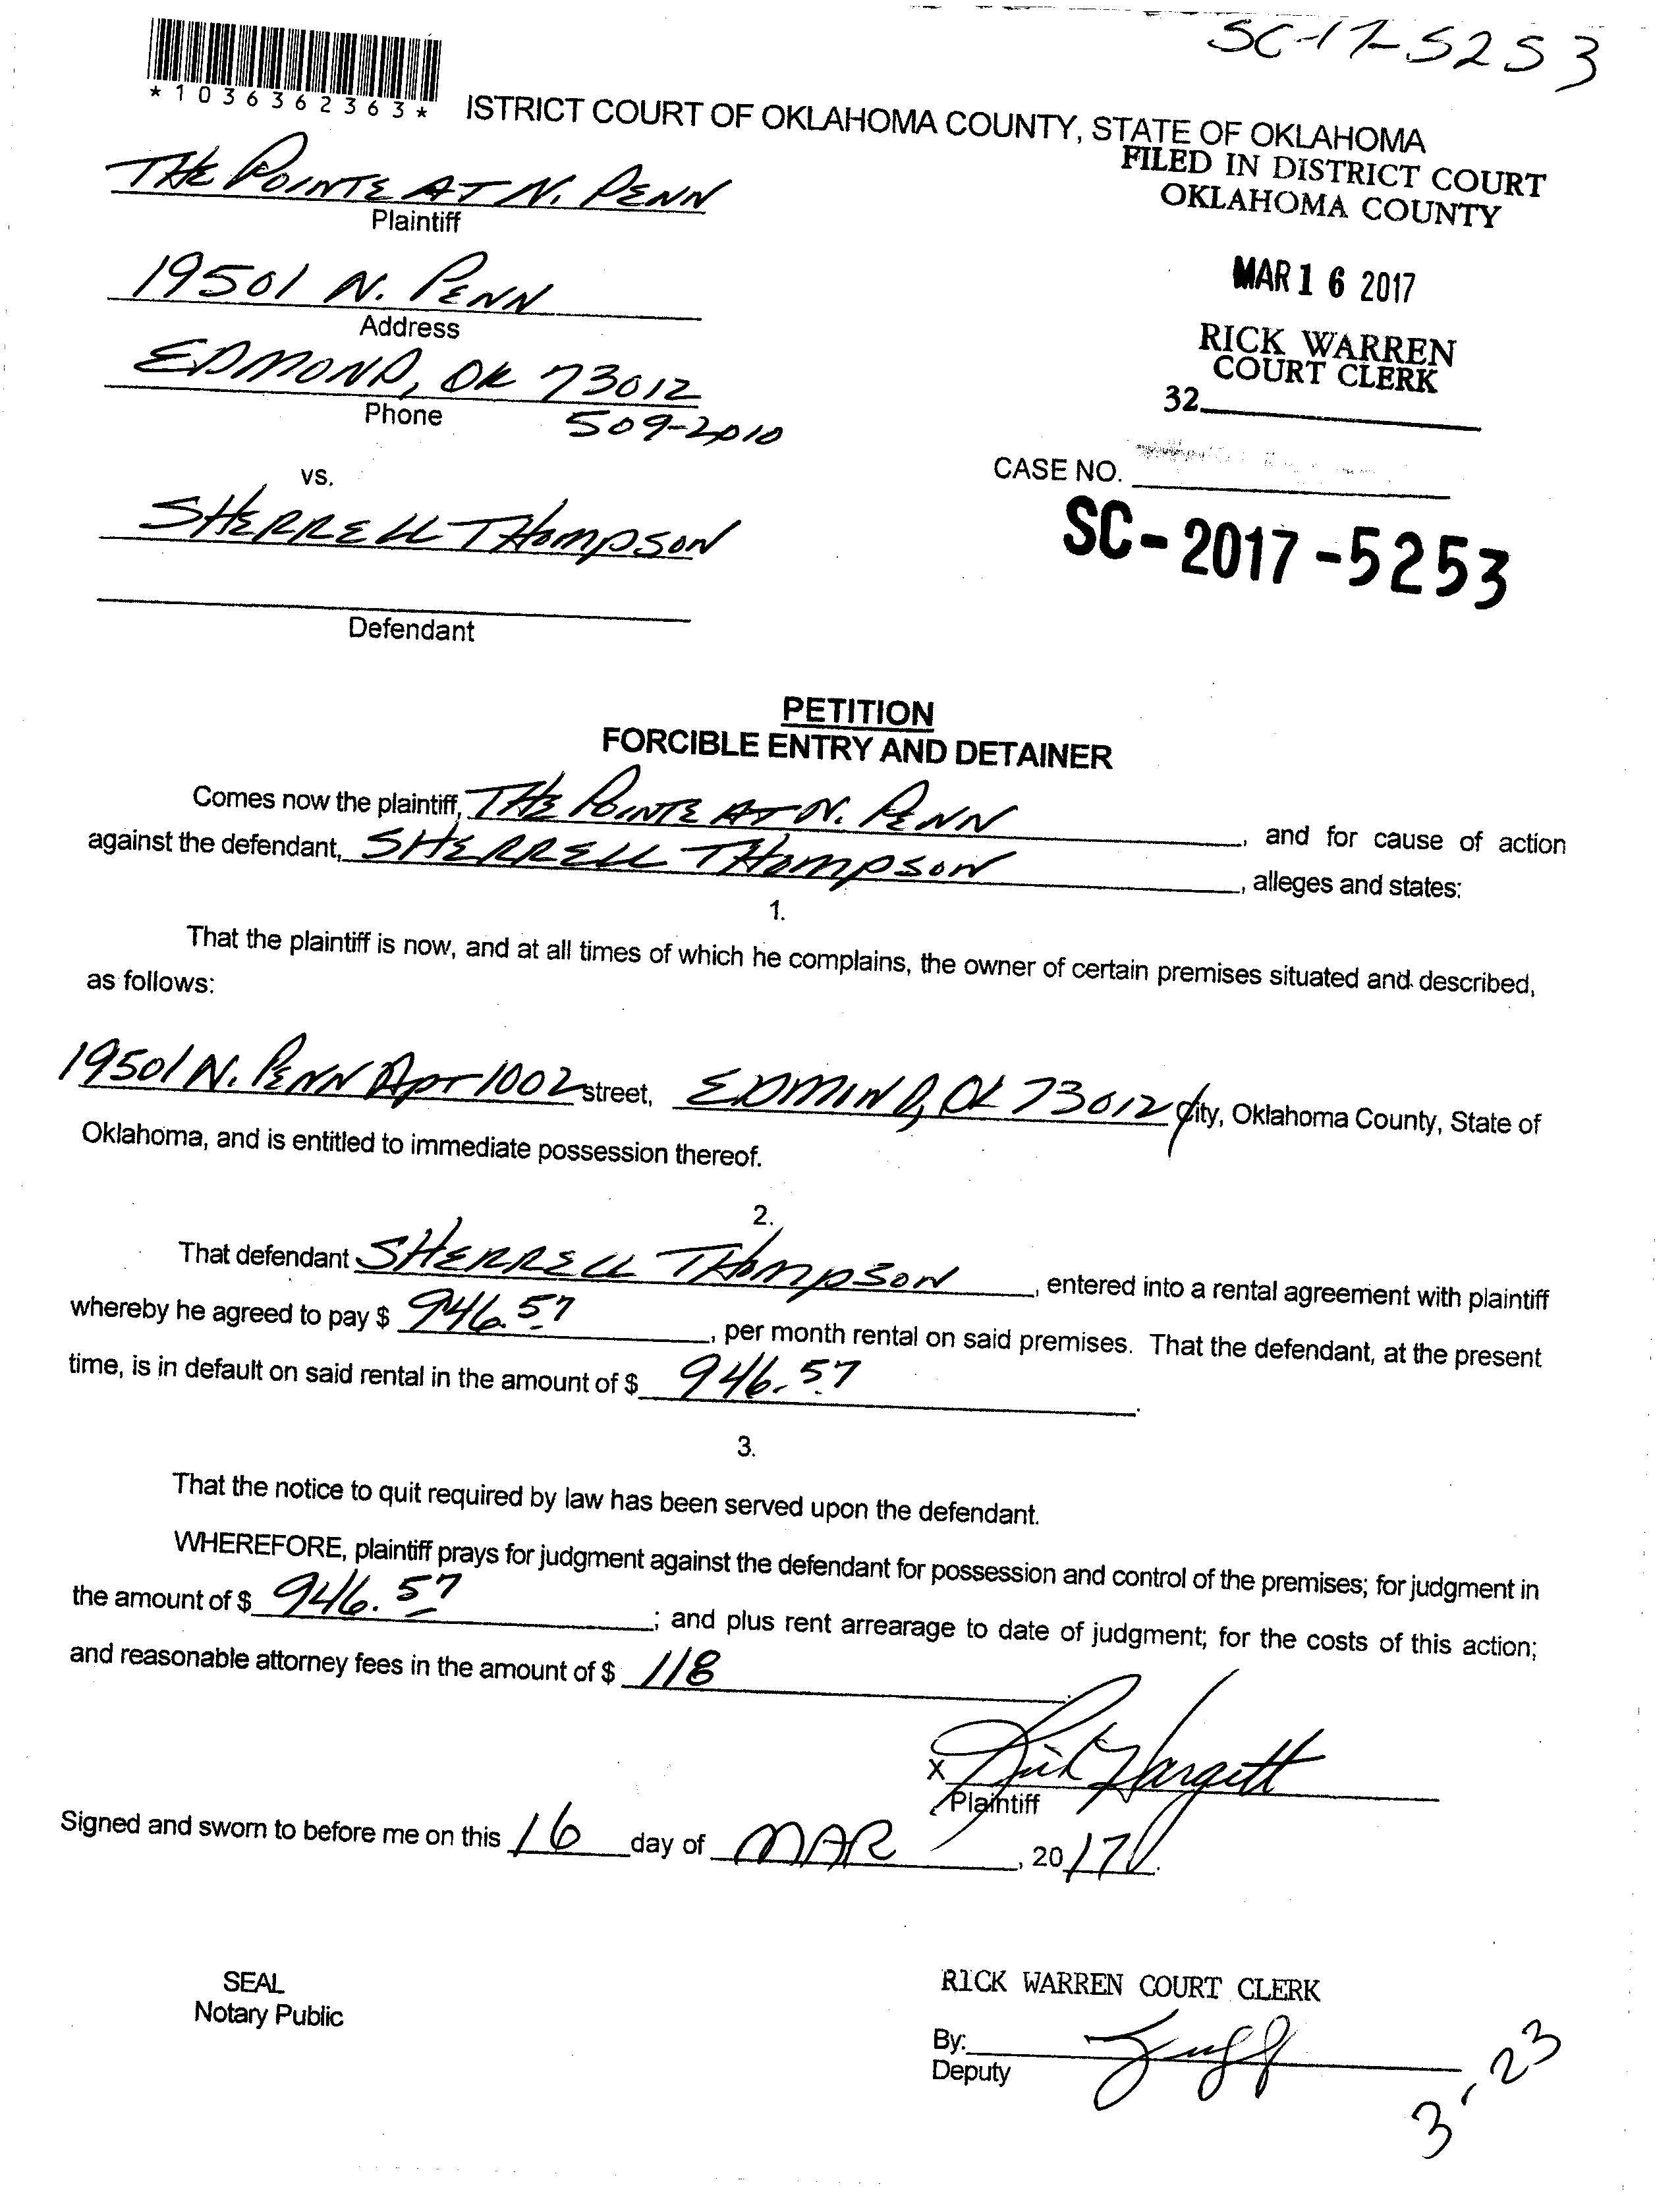 SC-17-5253
*1036362363*
ISTRICT COURT OF OKLAHOMA COUNTY, STATE OF OKLAHOMA
FILED IN DISTRICT COURT
OKLAHOMA COUNTY
THE POINTE AT N. PENN
Plaintiff
19501 N. PENN
Address
MAR 16 2017
EDMOND, OK 73012
Phone 509-2010
RICK WARREN
COURT CLERK
32
vs.
CASE NO.
SHERRELL THOMPSON
SC-2017-5253
Defendant
PETITION
FORCIBLE ENTRY AND DETAINER
Comes now the plaintiff, THE POINTE AT N. PENN, and for cause of action
against the defendant, SHERRELL THOMPSON, alleges and states:
1.
That the plaintiff is now, and at all times of which he complains, the owner of certain premises situated and described,
as follows:
19501 N. PENN APT 1002 street, EDMIND, OK 73012 City, Oklahoma County, State of
Oklahoma, and is entitled to immediate possession thereof.
2.
That defendant SHERRELL THOMPSON, entered into a rental agreement with plaintiff
whereby he agreed to pay $ 946.57, per month rental on said premises. That the defendant, at the present
time, is in default on said rental in the amount of $ 946.57.
3.
That the notice to quit required by law has been served upon the defendant.
WHEREFORE, plaintiff prays for judgment against the defendant for possession and control of the premises; for judgment in
the amount of $ 946.57; and plus rent arrearage to date of judgment; for the costs of this action;
and reasonable attorney fees in the amount of $ 118.
X Rick Hargett
Plaintiff
Signed and sworn to before me on this 16 day of MAR, 2017.
SEAL
Notary Public
RICK WARREN COURT CLERK
By:
Deputy
3-23